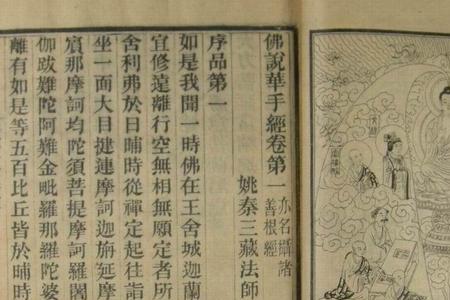 佛說華手經卷第一
亦名攝諸
善根經
姚秦三藏法師
序品第一
如是我聞一時佛在王舍城迦蘭
宜修遠離行空無相無願定者所
舍利弗於日晡時從禪定起往詣
坐一面大目揵連摩訶迦旃延摩
賓那摩訶均陀須菩提摩訶羅閣
伽跋難陀阿難金毗羅那羅陀婆
離有如是等五百比丘皆於晡時